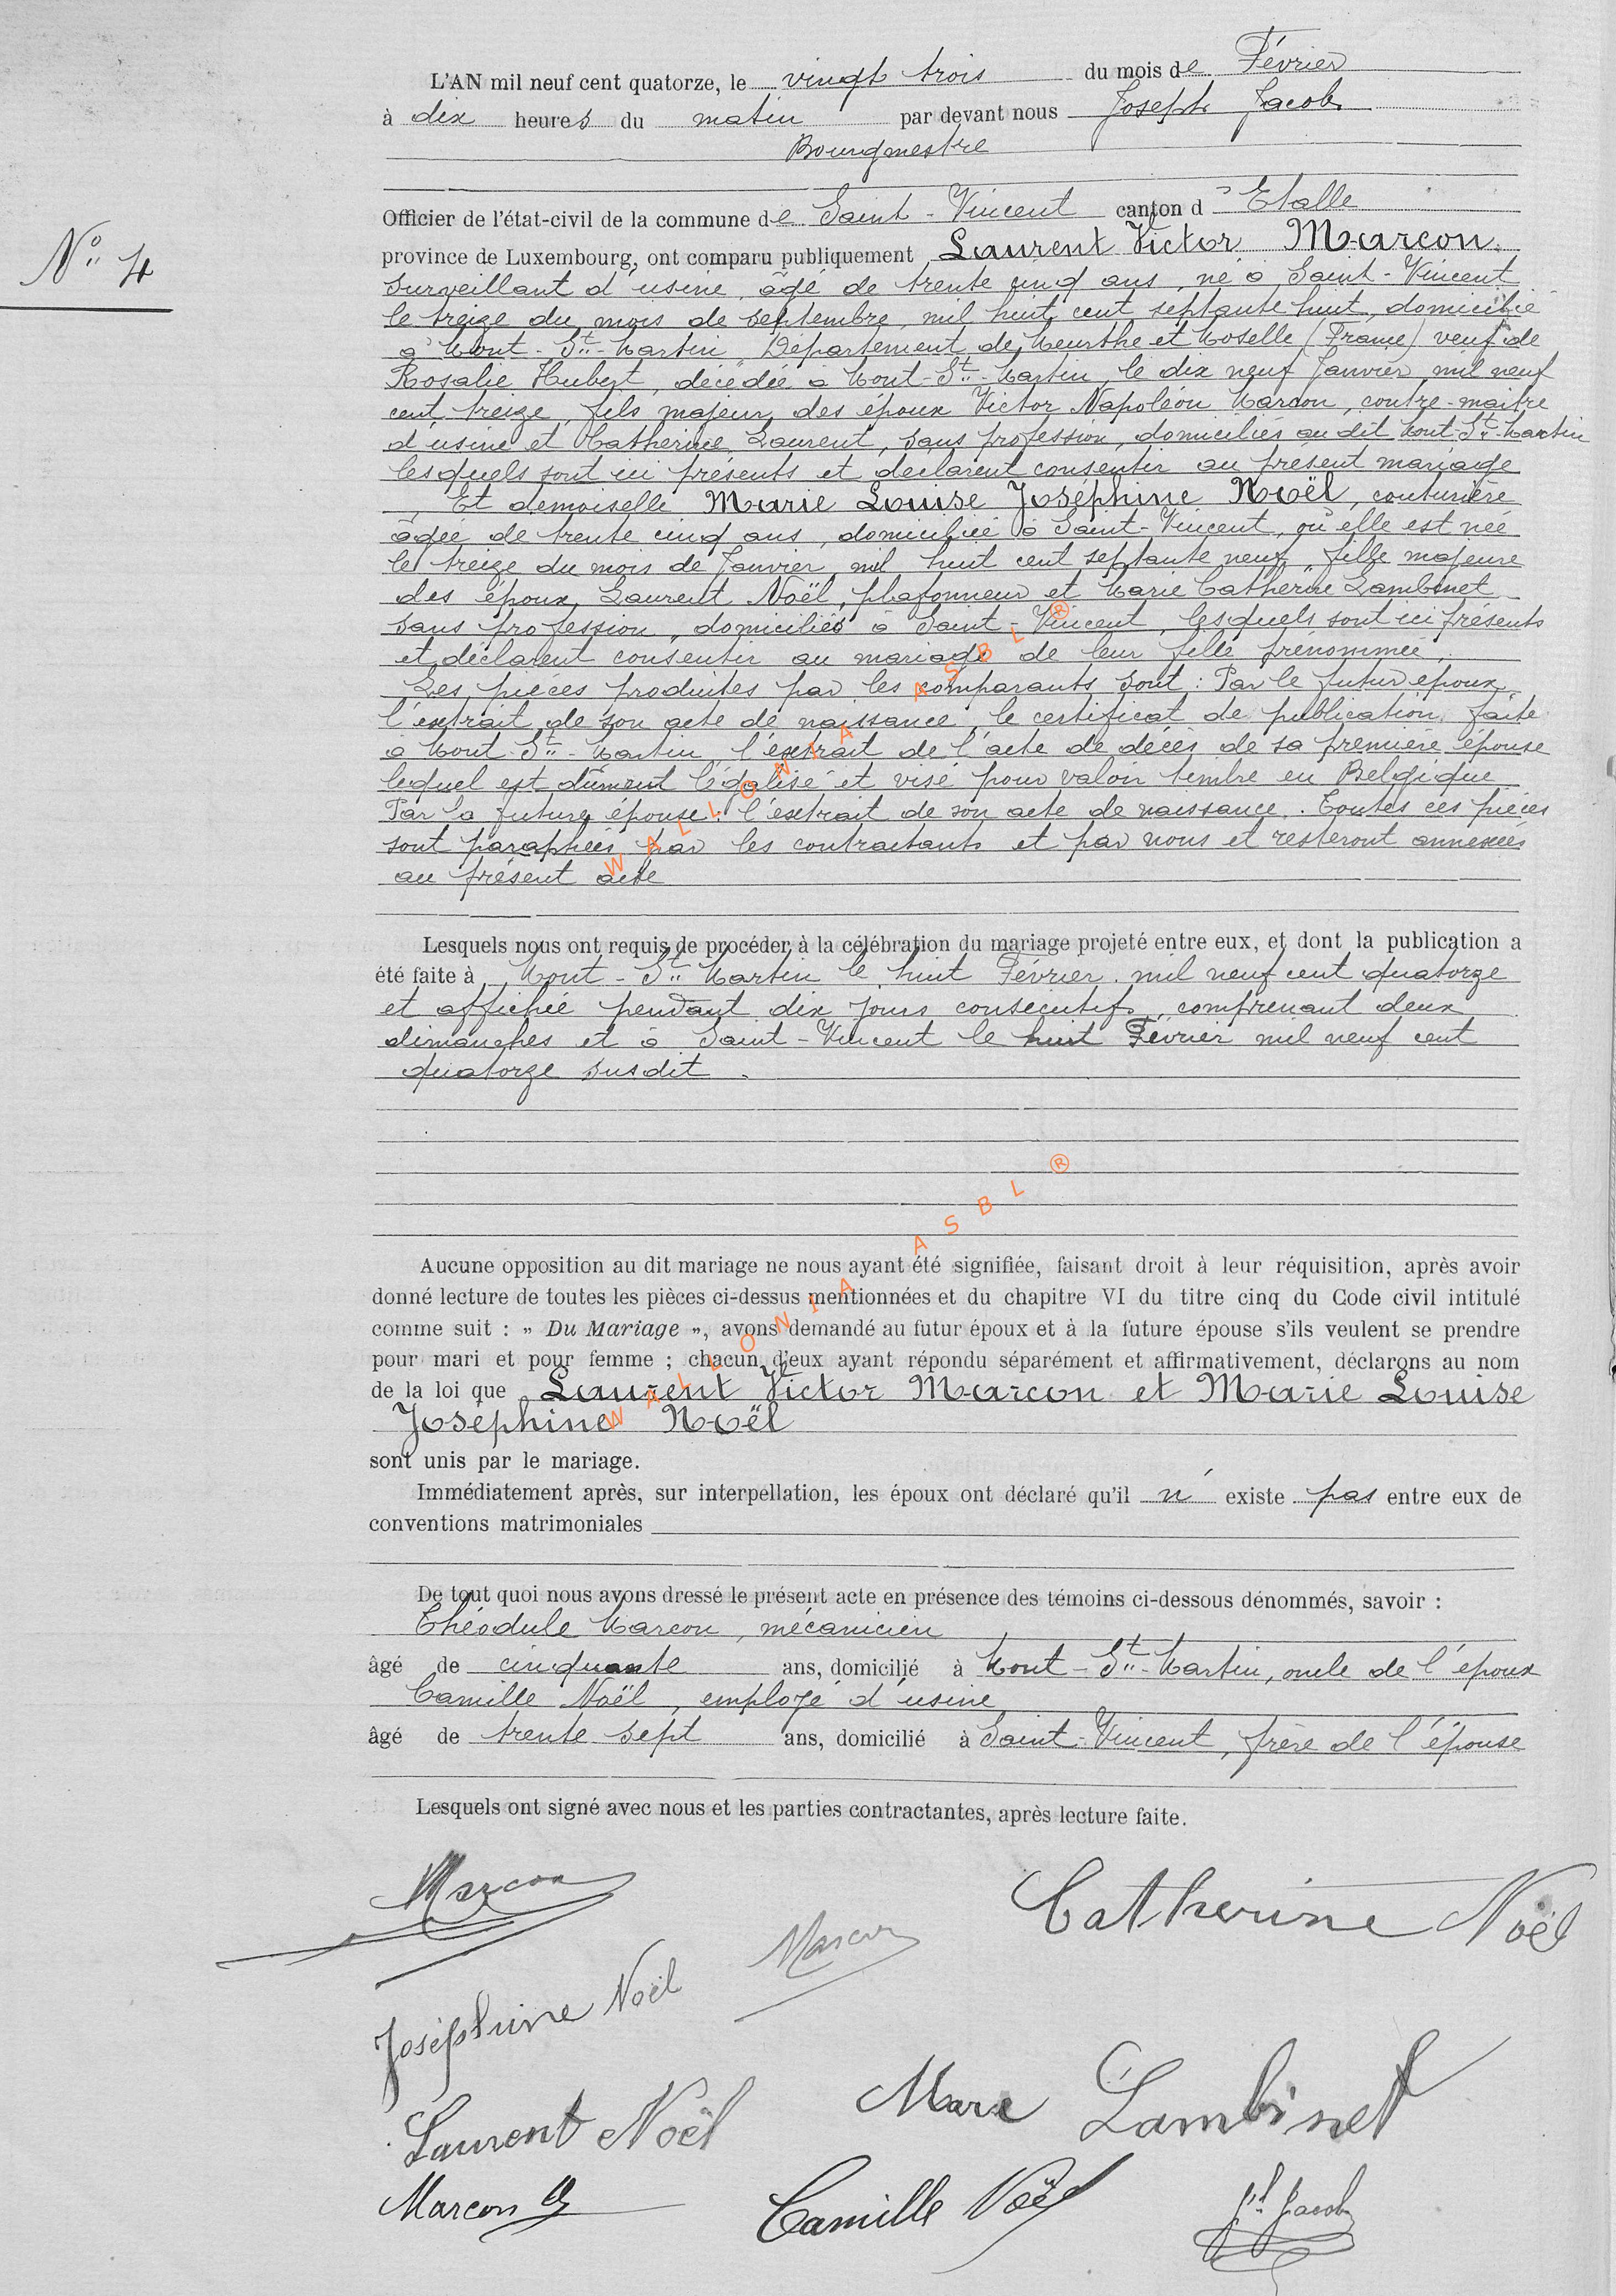 L'AN mil neuf cent quatorze, le vingt trois du mois de Février
à dix heures du matin par devant nous Joseph Jacob
Bourgmestre
Officier de l'état-civil de la commune de Saint-Vincent canton d'Etalle
N° 4
province de Luxembourg, ont comparu publiquement Laurent Victor Marcon,
surveillant d'usine, âgé de trente cinq ans, né à Saint-Vincent
le treize du mois de septembre, mil huit cent septante huit, domicilié
à Mont-St-Martin, Département de Meurthe et Moselle (France) veuf de
Rosalie Hubert, décédée à Mont-St-Martin le dix neuf Janvier, mil neuf
cent treize, fils majeur des époux Victor Napoléon Marcon, contre-maître
d'usine et Catherine Laurent, sans profession, domiciliés au dit Mont-St-Martin
lesquels sont ici présents et déclarent consentir au présent mariage
Et demoiselle Marie Louise Joséphine Noël, couturière
âgée de trente cinq ans, domiciliée à Saint-Vincent, où elle est née
le treize du mois de Janvier, mil huit cent septante neuf, fille majeure
des époux Laurent Noël, plafonneur et Marie Catherine Lambinet
sans profession, domiciliés à Saint-Vincent, lesquels sont ici présents
et déclarent consentir au mariage de leur fille prénommée.
Les pièces produites par les comparants sont : Par le futur époux
l'extrait de son acte de naissance, le certificat de publication faite
à Mont-St-Martin, l'extrait de l'acte de décès de sa première épouse
lequel est dûment légalisé et visé pour valoir timbre en Belgique
Par la future épouse : l'extrait de son acte de naissance. Toutes ces pièces
sont paraphées par les contractants et par nous et resteront annexées
au présent acte
WALLONIA ASBL ®
Lesquels nous ont requis de procéder à la célébration du mariage projeté entre eux, et dont la publication a
été faite à Mont-St-Martin le huit Février mil neuf cent quatorze
et affichée pendant dix jours consécutifs, comprenant deux
dimanches et à Saint-Vincent le huit Février mil neuf cent
quatorze susdit.
WALLONIA ASBL ®
Aucune opposition au dit mariage ne nous ayant été signifiée, faisant droit à leur réquisition, après avoir
donné lecture de toutes les pièces ci-dessus mentionnées et du chapitre VI du titre cinq du Code civil intitulé
comme suit : » Du Mariage », avons demandé au futur époux et à la future épouse s'ils veulent se prendre
pour mari et pour femme ; chacun d'eux ayant répondu séparément et affirmativement, déclarons au nom
de la loi que Laurent Victor Marcon et Marie Louise
Joséphine Noël
sont unis par le mariage.
Immédiatement après, sur interpellation, les époux ont déclaré qu'il n' existe pas entre eux de
conventions matrimoniales
De tout quoi nous avons dressé le présent acte en présence des témoins ci-dessous dénommés, savoir :
Théodule Marcon, mécanicien
âgé de cinquante ans, domicilié à Mont-St-Martin, oncle de l'époux
Camille Noël, employé d'usine
âgé de trente sept ans, domicilié à Saint-Vincent, frère de l'épouse
Lesquels ont signé avec nous et les parties contractantes, après lecture faite.
Marcon
Catherine Noël
Marcon
Joséphine Noël
Marie Lambinet
Laurent Noël
Marcon
Camille Noël
Jh Jacob